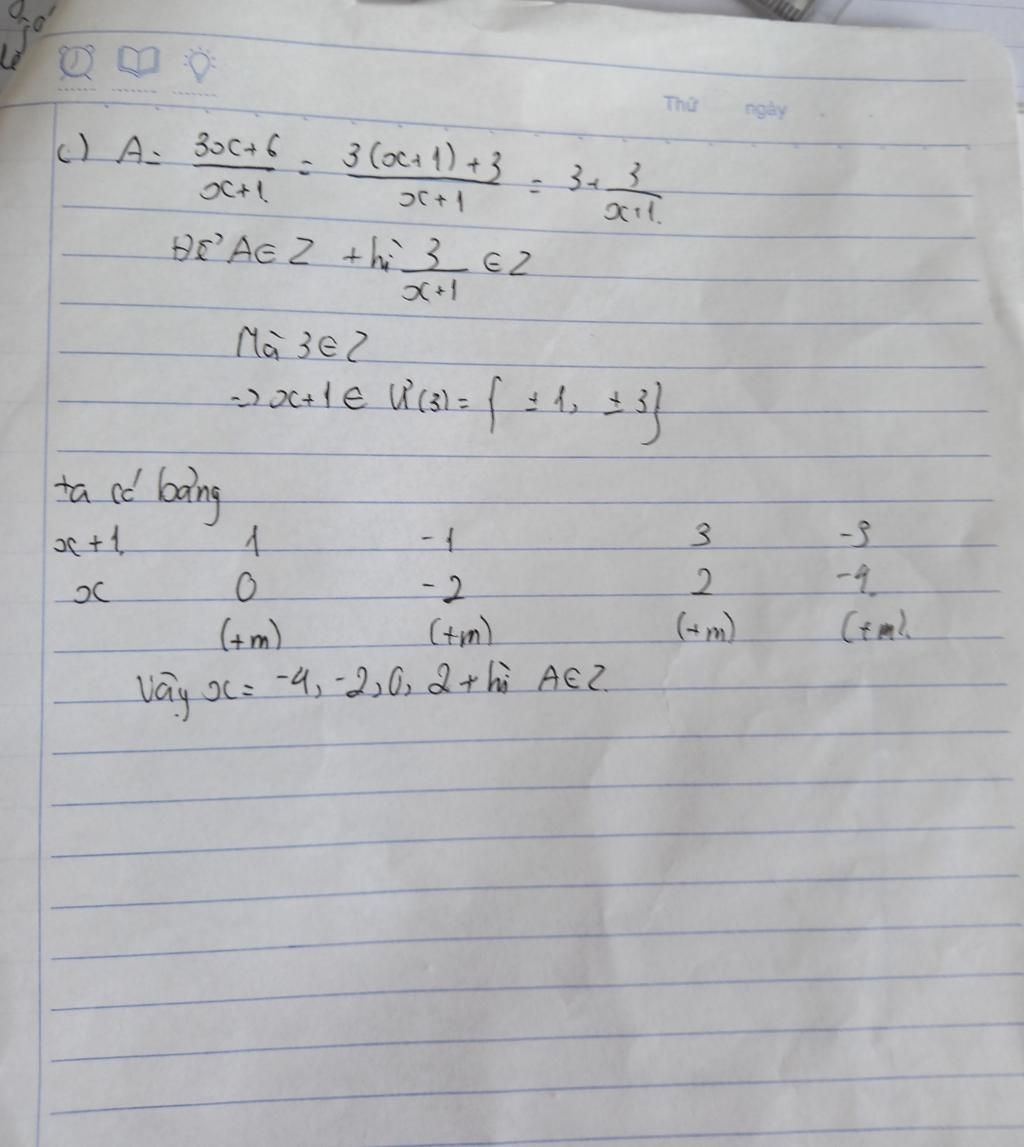 Thứ ngày
c) A = \frac{3x+6}{x+1} = \frac{3(x+1)+3}{x+1} = 3 + \frac{3}{x+1}
Để A ∈ Z thì \frac{3}{x+1} ∈ Z
Mà 3 ∈ Z
=> x+1 ∈ Ư(3) = { ±1, ±3}
ta có bảng
x+1 1 -1 3 -3
x 0 -2 2 -4
(tm) (tm) (tm) (tm).
Vậy x = -4, -2, 0, 2 thì A ∈ Z.